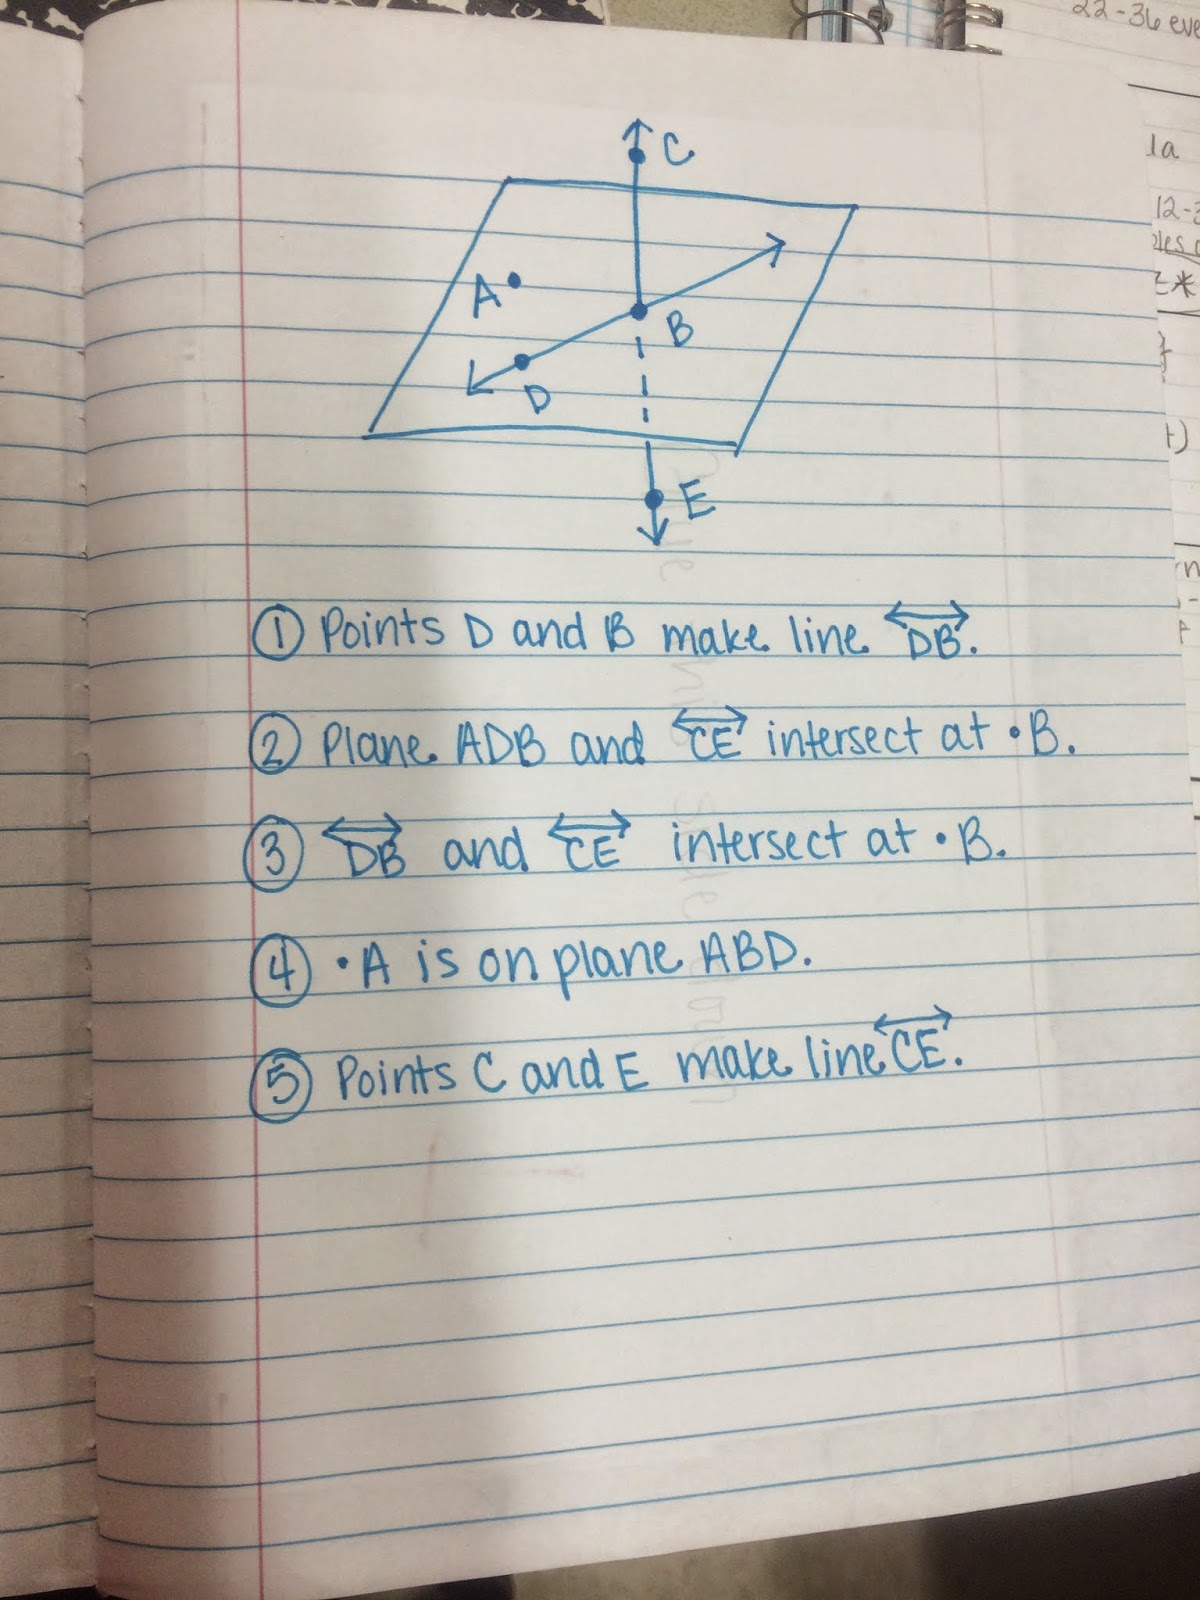 22-36 eve
1a
C
12-3
A
B
D
E
① Points D and B make line DB.
② Plane ADB and CE intersect at •B.
③ DB and CE intersect at •B.
④ •A is on plane ABD.
⑤ Points C and E make line CE.